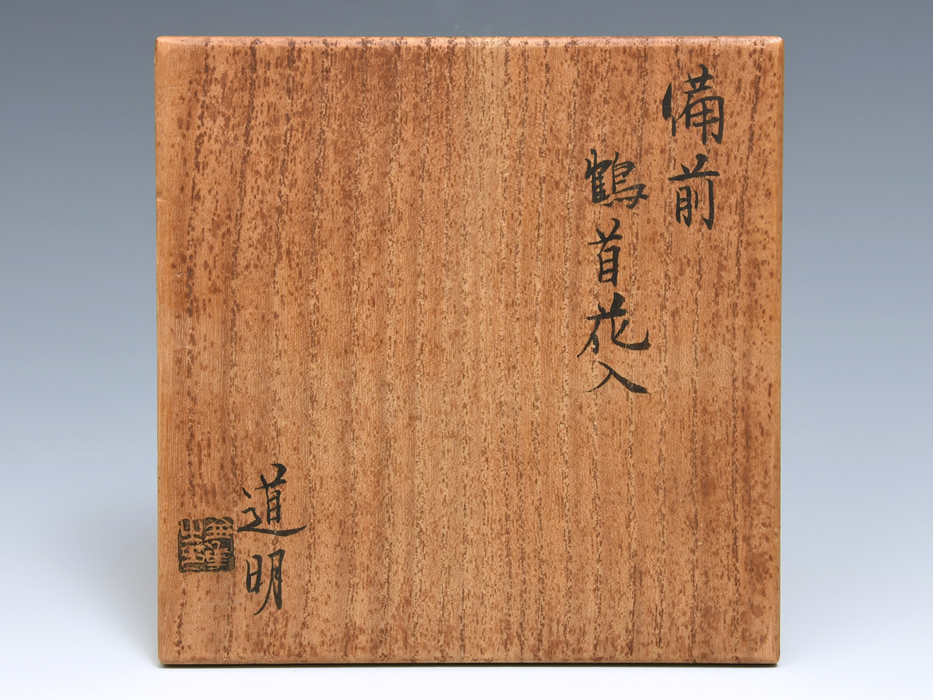 備前
鶴首花入
道明